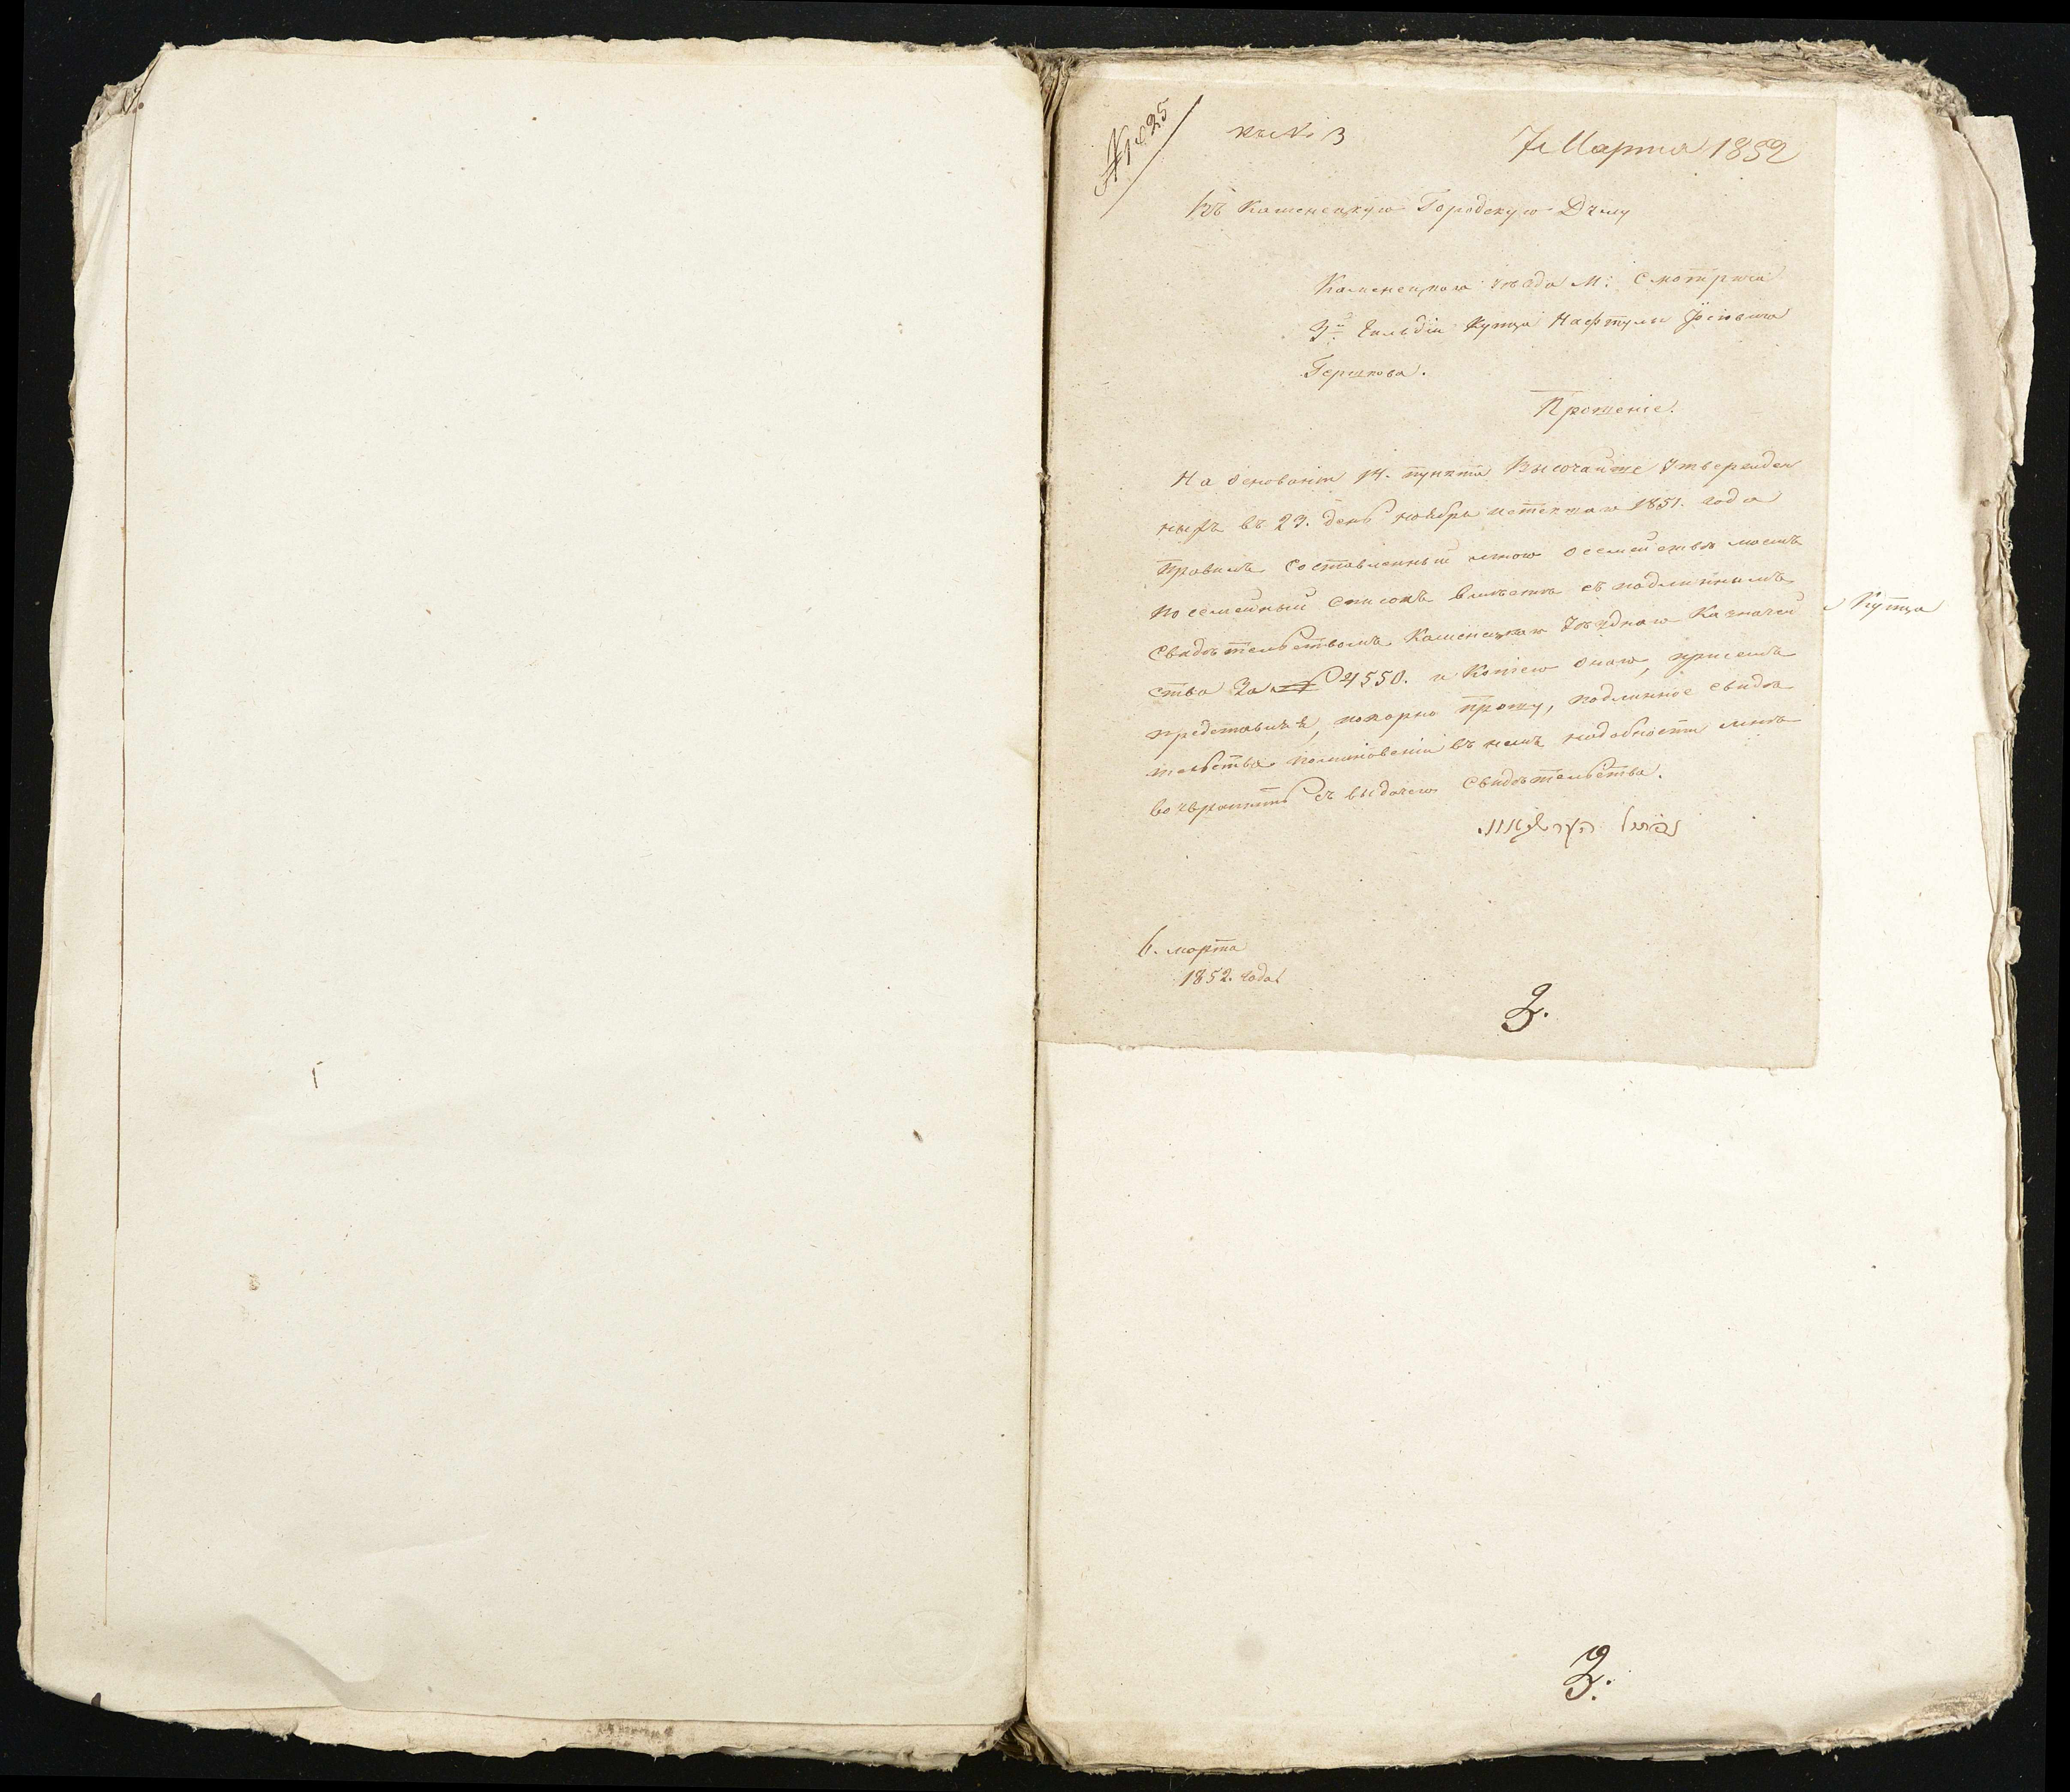 № 1825
къ № 3
7 Марта 1852
Въ Каменецкую Городскую Думу
Каменецкаго уѣзда М: Смотрича
3й Гильдіи Купца Нафтулы
Гершкова.
Прошеніе.
На основаніи 14. пункта Высочайше утвержден
ныхъ въ 23. день ноября истекшаго 1851. года
правилъ составленный мною о семействѣ моемъ
посемейный списокъ вмѣстѣ съ подлиннымъ
Свидѣтельствомъ Каменецкаго Уѣзднаго Казначей
ства За № 4550. и Копіею онаго, присемъ
представляя, покорно прошу, подлинное свидѣ
тельство помѣнованіи въ немъ надобности мнѣ
возвратить съ выдачею Свидѣтельства.
נפתלי
6. марта
1852. года
3.
и Купца
3.